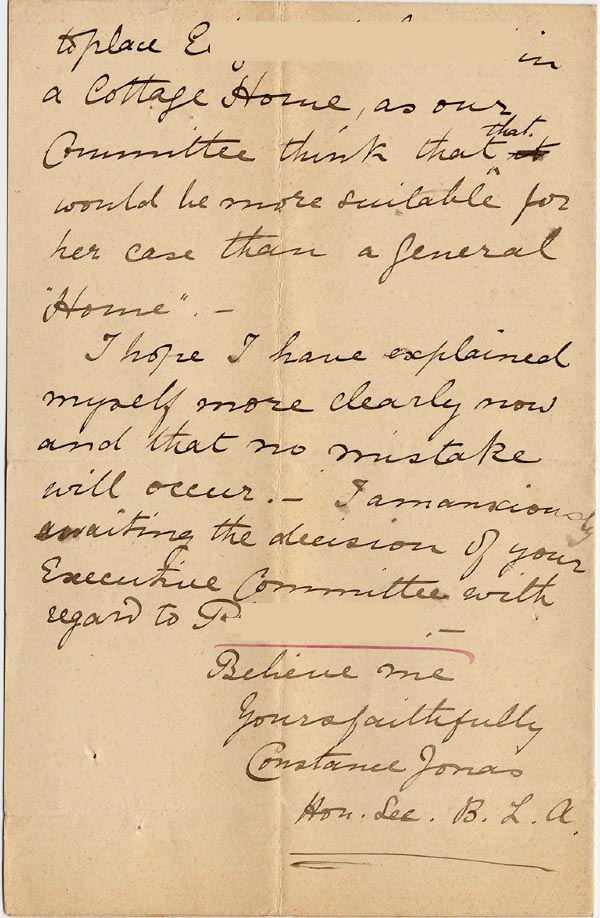 to place E in
a Cottage Home, as our
Committee think that that it
would be more suitable for
her case than a general
"Home". —
I hope I have explained
myself more clearly now
and that no mistake
will occur. — I am anxiously
awaiting the decision of your
Executive Committee with
regard to —
Believe me
Yours faithfully
Constance Jonas
Hon. Sec. B. L. A.